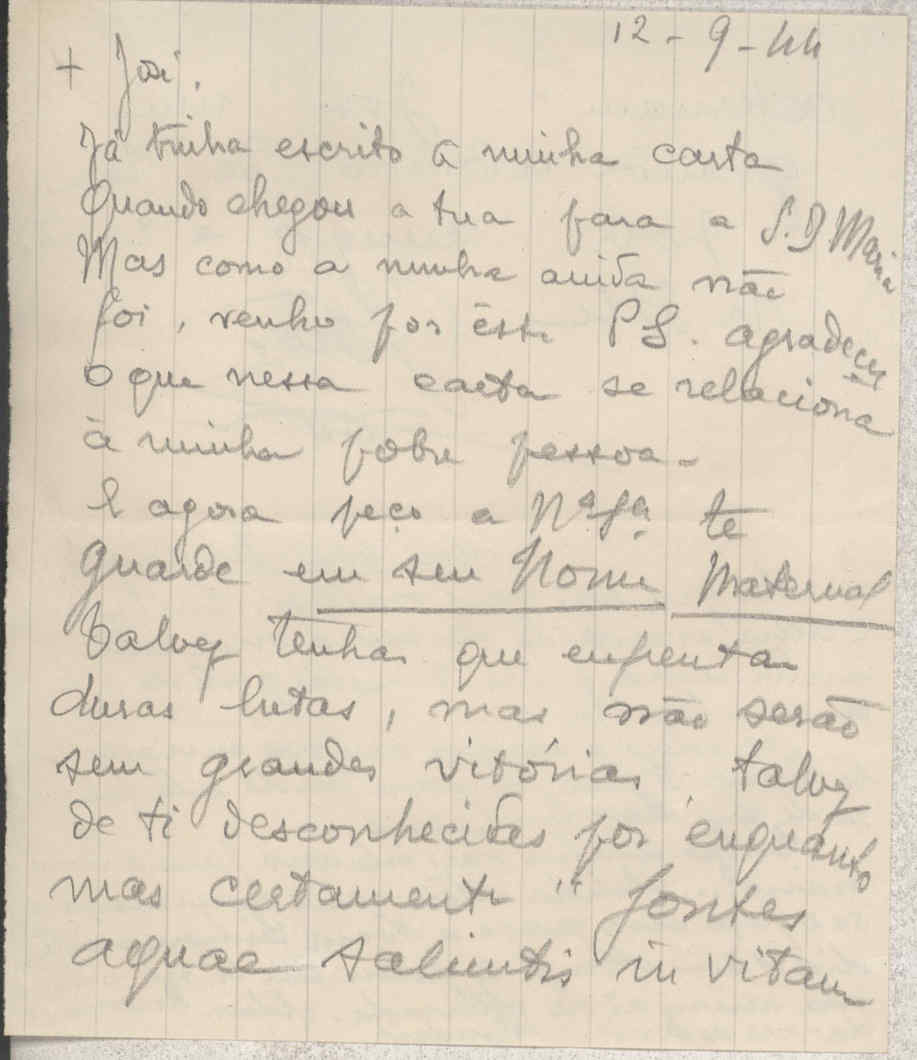 12-9-44
+ José.
Já tinha escrito a minha carta
Quando chegou a tua para a S. D Maria
Mas como a minha ainda não
foi, venho por êste P.S. agradecer
o que nessa carta se relaciona
à minha pobre pessoa -
E agora peço a Nª Sª. te
guarde em seu Nome Maternal
Talvez tenhas que enfrentar
duras lutas, mas não serão
sem grandes vitórias, talvez
de ti desconhecidas por enquanto
mas certamente "fontes
aquae salientis in vitam